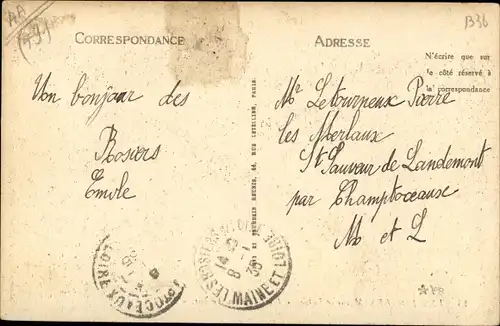 AA
B36
CORRESPONDANCE
ADRESSE
N'écrire que sur
le côté réservé à
la correspondance
Un bonjour des
Rosiers
Emile
Mr Letourneux Pierre
les Merlaux
St Sauveur de Landemont
par Champtoceaux
M et L
MAINE ET LOIRE
LOIRE